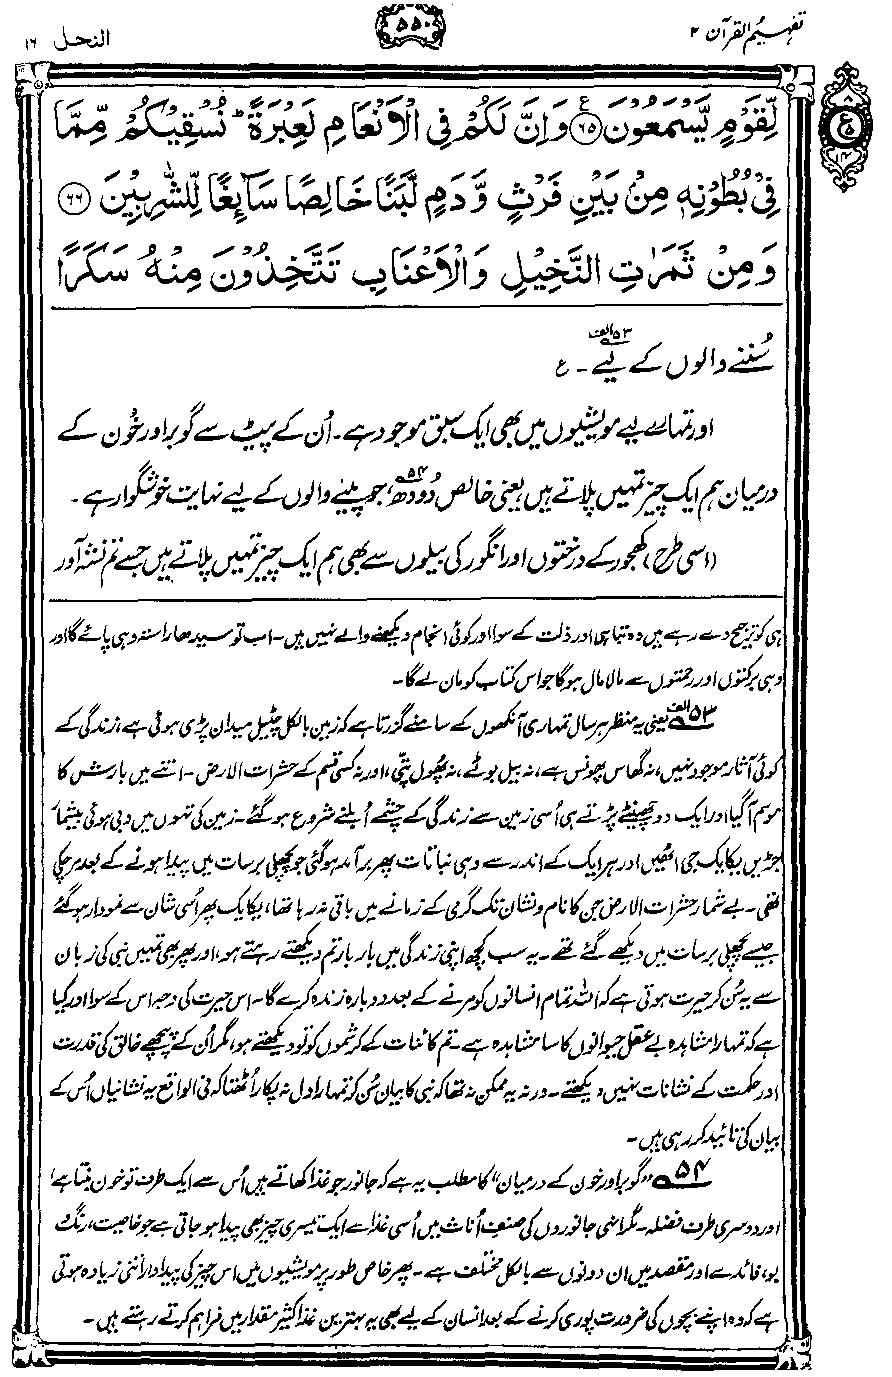 تفہیم القرآن ۲
۵۵۰
النحل ۱۶
لِّقَوْمٍ يَّسْمَعُوْنَ ﴿۶۵﴾ ع وَاِنَّ لَكُمْ فِى الْاَنْعَامِ لَعِبْرَةً ؕ نُسْقِيْكُمْ مِّمَّا
فِىْ بُطُوْنِهٖ مِنْۢ بَيْنِ فَرْثٍ وَّدَمٍ لَّبَنًا خَالِصًا سَآئِغًا لِّلشّٰرِبِيْنَ ﴿۶۶﴾
وَمِنْ ثَمَرٰتِ النَّخِيْلِ وَالْاَعْنَابِ تَتَّخِذُوْنَ مِنْهُ سَكَرًا
سُننے والوں کے لیے۵۳الف۔ ع
اور تمہارے لیے مویشیوں میں بھی ایک سبق موجود ہے۔ اُن کے پیٹ سے گوبر اور خُون کے
درمیان ہم ایک چیز تمہیں پلاتے ہیں، یعنی خالص دُودھ۵۴، جو پینے والوں کے لیے نہایت خوشگوار ہے۔
(اسی طرح) کھجور کے درختوں اور انگور کی بیلوں سے بھی ہم ایک چیز تمہیں پلاتے ہیں جسے تم نشہ آور
ہی کو ترجیح دے رہے ہیں وہ تباہی اور ذلت کے سوا اور کوئی انجام دیکھنے والے نہیں ہیں۔ اب تو سیدھا راستہ وہی پائے گا اور
وہی برکتوں اور رحمتوں سے مالا مال ہوگا جو اس کتاب کو مان لے گا۔
۵۳الف یعنی یہ منظر ہر سال تمہاری آنکھوں کے سامنے گزرتا ہے کہ زمین بالکل چٹیل میدان پڑی ہوئی ہے، زندگی کے
کوئی آثار موجود نہیں، نہ گھاس پھونس ہے، نہ بیل بوٹے، نہ پھول پتی، اور نہ کسی قسم کے حشرات الارض۔ اتنے میں بارش کا
موسم آگیا اور ایک دو چھینٹے پڑتے ہی اُسی زمین سے زندگی کے چشمے اُبلنے شروع ہوگئے۔ زمین کی تہوں میں دبی ہوئی بیشمار
جڑیں یکایک جی اٹھیں اور ہر ایک کے اندر سے وہی نباتات پھر برآمد ہوگئی جو پچھلی برسات میں پیدا ہونے کے بعد مرچکی
تھی۔ بے شمار حشرات الارض جن کا نام و نشان تک گرمی کے زمانے میں باقی نہ رہا تھا، یکایک پھر اُسی شان سے نمودار ہوگئے
جیسے پچھلی برسات میں دیکھے گئے تھے۔ یہ سب کچھ اپنی زندگی میں بار بار تم دیکھتے رہتے ہو، اور پھر بھی تمہیں نبی کی زبان
سے یہ سُن کر حیرت ہوتی ہے کہ اللہ تمام انسانوں کو مرنے کے بعد دوبارہ زندہ کرے گا۔ اس حیرت کی وجہ اس کے سوا اور کیا
ہے کہ تمہارا مشاہدہ بے عقل حیوانوں کا سا مشاہدہ ہے۔ تم کائنات کے کرشموں کو تو دیکھتے ہو، مگر اُن کے پیچھے خالق کی قدرت
اور حکمت کے نشانات نہیں دیکھتے۔ ورنہ یہ ممکن نہ تھا کہ نبی کا بیان سُن کر تمہارا دل نہ پکار اُٹھتا کہ فی الواقع یہ نشانیاں اُس کے
بیان کی تائید کر رہی ہیں۔
۵۴ ”گوبر اور خون کے درمیان“ کا مطلب یہ ہے کہ جانور جو غذا کھاتے ہیں اُس سے ایک طرف تو خون بنتا ہے،
اور دوسری طرف فضلہ۔ مگر انہی جانوروں کی صنفِ اُناث میں اُسی غذا سے ایک تیسری چیز بھی پیدا ہو جاتی ہے جو خاصیت، رنگ،
بو، فائدے اور مقصد میں ان دونوں سے بالکل مختلف ہے۔ پھر خاص طور پر مویشیوں میں اس چیز کی پیداوار اتنی زیادہ ہوتی
ہے کہ وہ اپنے بچوں کی ضرورت پوری کرنے کے بعد انسان کے لیے بھی یہ بہترین غذا کثیر مقدار میں فراہم کرتے رہتے ہیں۔